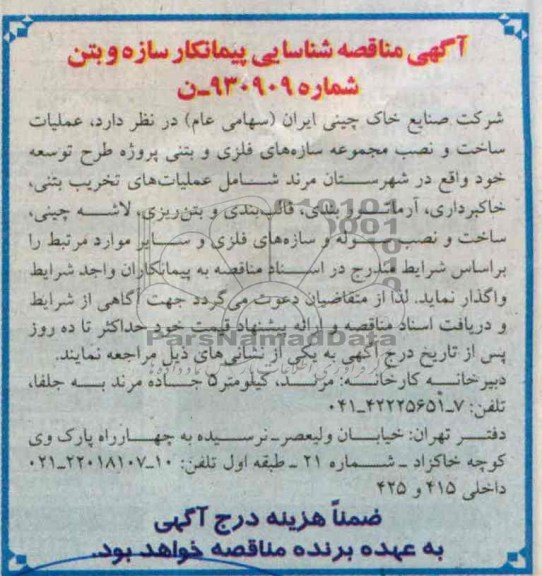 آگهی مناقصه شناسایی پیمانکار سازه و بتن
شماره ۹۳۰۹۰۹-ن
شرکت صنایع خاک چینی ایران (سهامی عام) در نظر دارد، عملیات
ساخت و نصب مجموعه سازه‌های فلزی و بتنی پروژه طرح توسعه
خود واقع در شهرستان مرند شامل عملیات‌های تخریب بتنی،
خاکبرداری، آرماتوربندی، قالب‌بندی و بتن‌ریزی، لاشه چینی،
ساخت و نصب لوله و سازه‌های فلزی و سایر موارد مرتبط را
براساس شرایط مندرج در اسناد مناقصه به پیمانکاران واجد شرایط
واگذار نماید. لذا از متقاضیان دعوت می‌گردد جهت آگاهی از شرایط
و دریافت اسناد مناقصه و ارائه پیشنهاد قیمت خود حداکثر تا ده روز
پس از تاریخ درج آگهی به یکی از نشانی‌های ذیل مراجعه نمایند.
دبیرخانه کارخانه: مرند، کیلومتر۵ جاده مرند به جلفا،
تلفن: ۷-۴۲۲۲۵۶۵۱-۰۴۱
دفتر تهران: خیابان ولیعصر-نرسیده به چهارراه پارک وی
کوچه خاکزاد - شماره ۲۱ - طبقه اول تلفن: ۱۰-۲۲۰۱۸۱۰۷-۰۲۱
داخلی ۴۱۵ و ۴۲۵
ضمناً هزینه درج آگهی
به عهده برنده مناقصه خواهد بود.
ParsNamadData